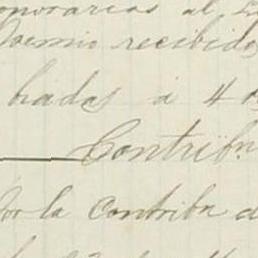 onorarios al
Poemio recibido
hadas á 4
Contribn
Por la Contribn d